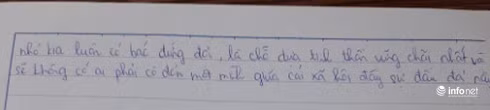 nhỏ kia luôn có bác đứng đợi, là chỗ dựa tinh thần vững chãi nhất và
sẽ không có ai phải cô đơn một mình giữa cái xã hội đầy sự dẫn dắt này
infonet